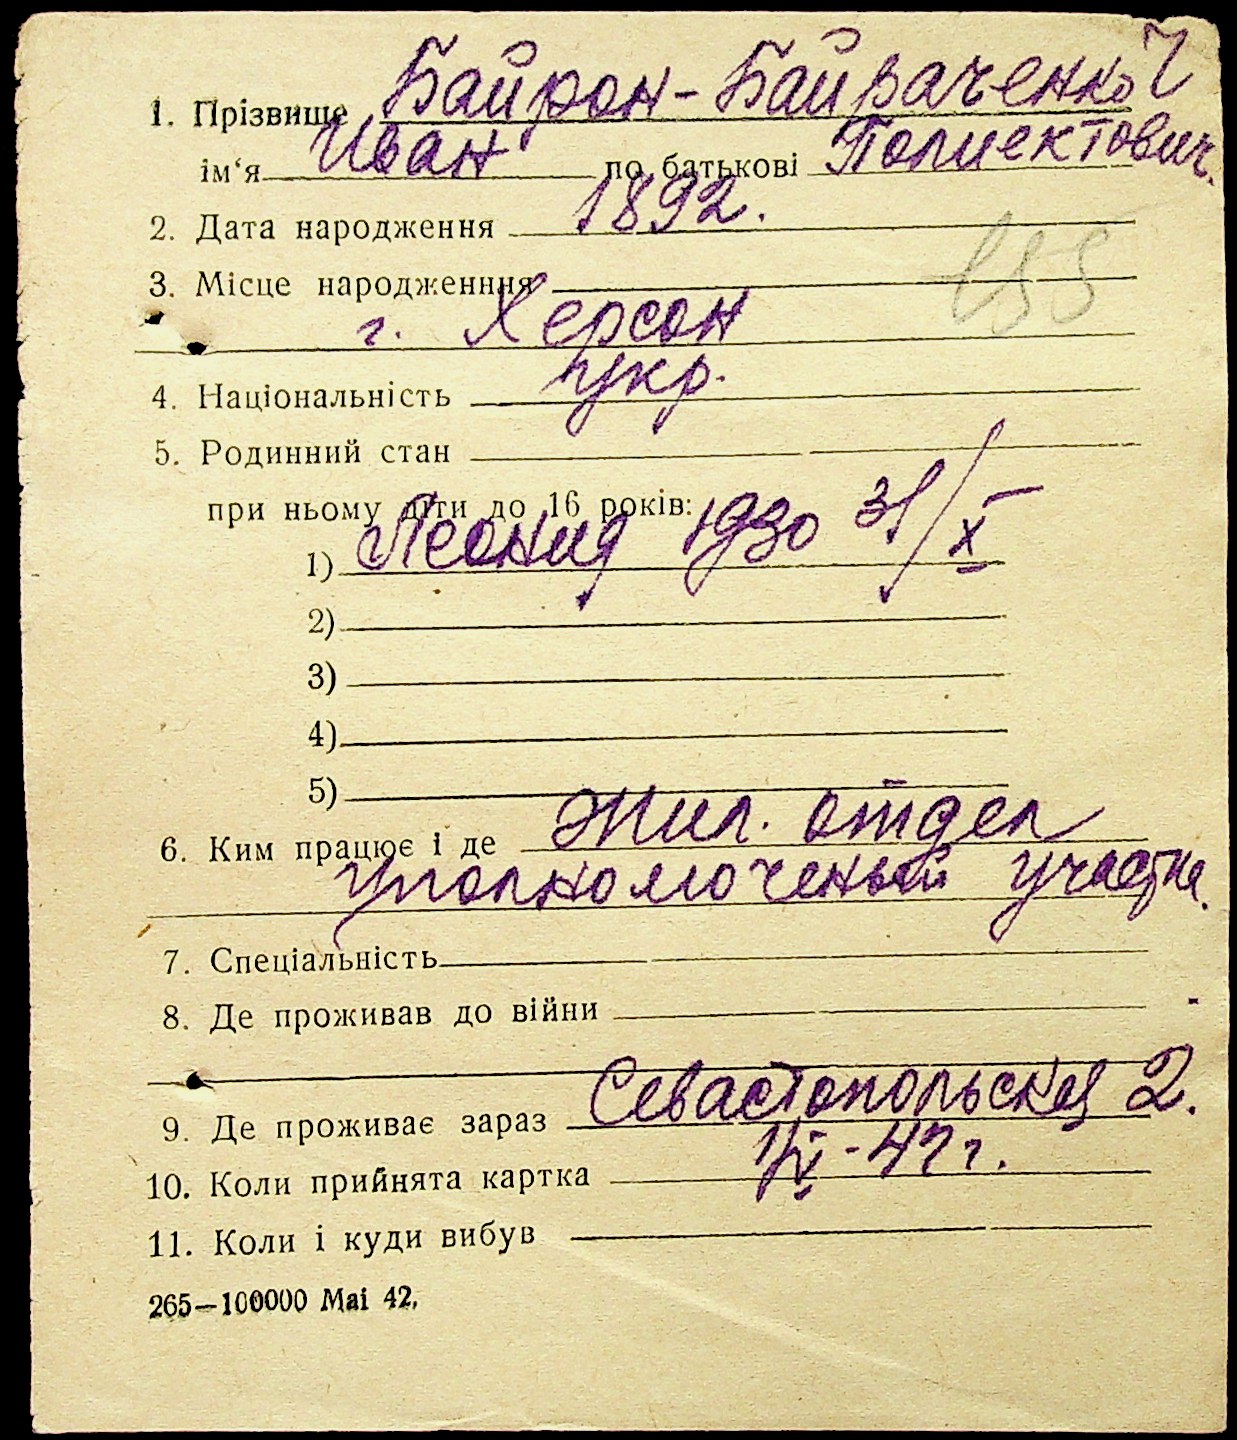 1. Прізвище Байрон-Байраченко
ім‘я Иван по батькові Полиектович.
2. Дата народження 1892.
3. Місце народженння
г. Херсон
4. Національність укр.
5. Родинний стан
при ньому діти до 16 років:
1) Леонид 1930 31/X
2)
3)
4)
5)
6. Ким працює і де Жил. отдел
уполномоченый участка.
7. Спеціальність
8. Де проживав до війни
9. Де проживає зараз Севастопольская 2.
10. Коли прийнята картка
11. Коли і куди вибув
265—100000 Mai 42.